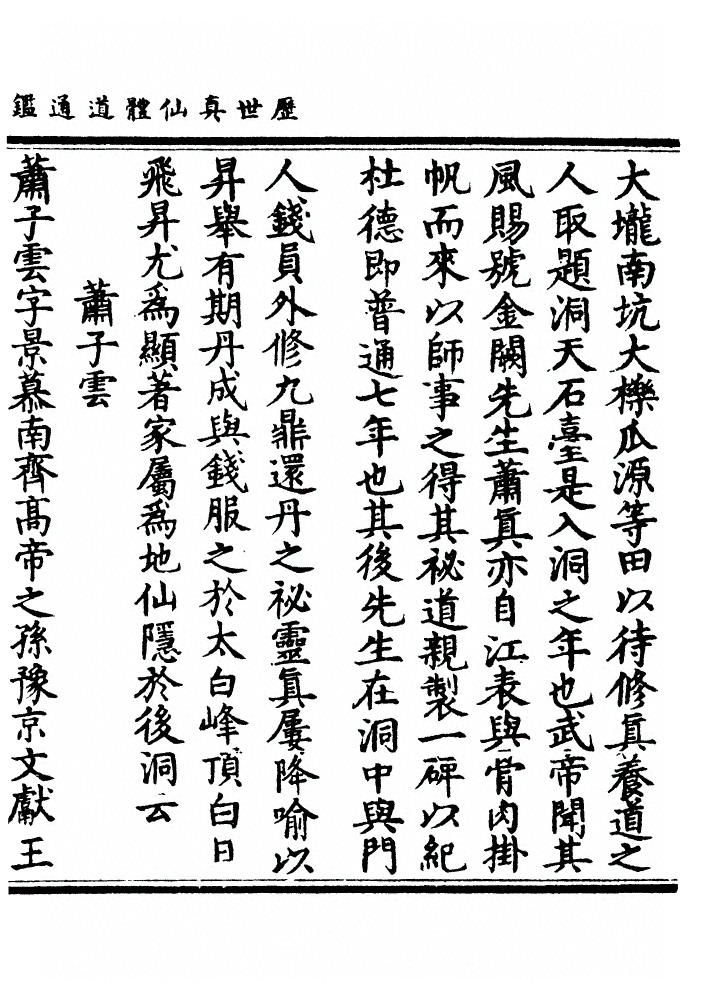 歷世真仙體道通鑑
大壠南坑大櫟瓜源等田以待修眞養道之
人取題洞天石臺是入洞之年也武帝聞其
風賜號金闕先生蕭眞亦自江表與骨肉掛
帆而來以師事之得其祕道親製一碑以紀
杜德即普通七年也其後先生在洞中與門
人錢員外修九鼎還丹之祕靈眞屢降喻以
昇舉有期丹成與錢服之於太白峰頂白日
飛昇尤爲顯著家屬爲地仙隱於後洞云
蕭子雲
蕭子雲字景慕南齊高帝之孫豫京文獻王